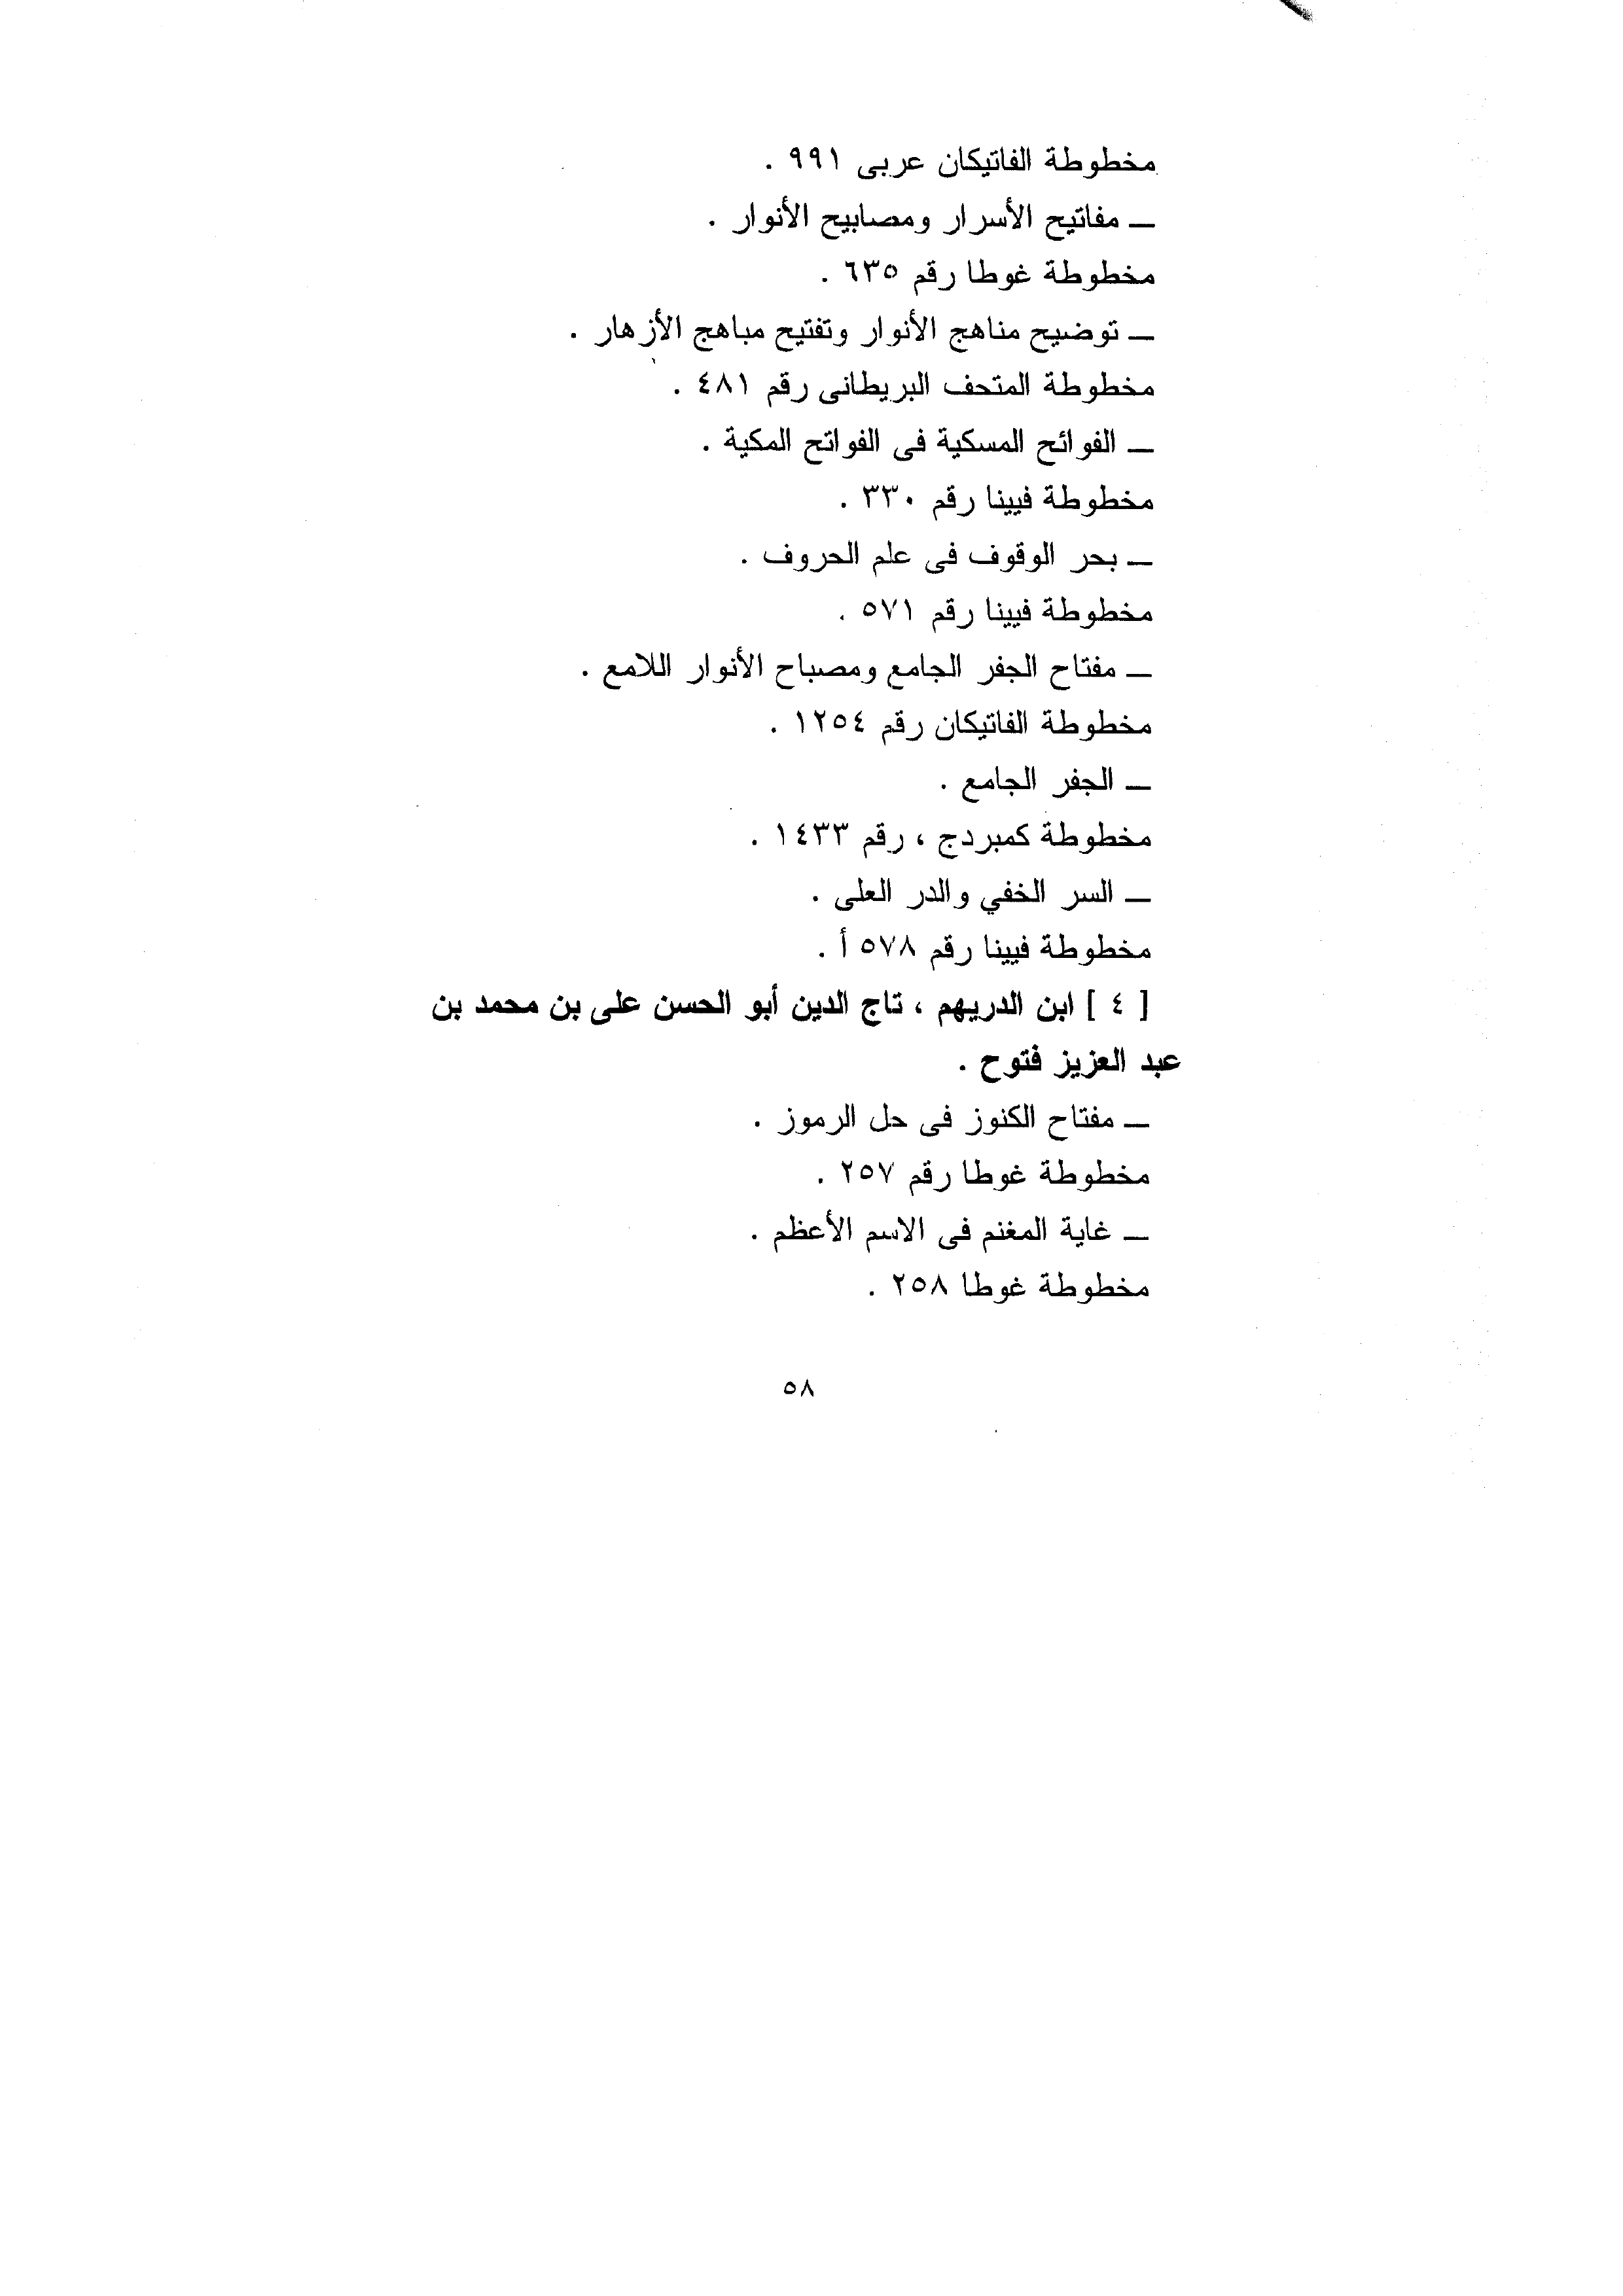 مخطوطة الفاتيكان عربى ٩٩١ .
ــ مفاتيح الأسرار ومصابيح الأنوار .
مخطوطة غوطا رقم ٦٣٥ .
ــ توضيح مناهج الأنوار وتفتيح مباهج الأزهار .
مخطوطة المتحف البريطانى رقم ٤٨١ .
ــ الفوائح المسكية فى الفواتح المكية .
مخطوطة فيينا رقم ٣٣٠ .
ــ بحر الوقوف فى علم الحروف .
مخطوطة فيينا رقم ٥٧١ .
ــ مفتاح الجفر الجامع ومصباح الأنوار اللامع .
مخطوطة الفاتيكان رقم ١٢٥٤ .
ــ الجفر الجامع .
مخطوطة كمبردج ، رقم ١٤٣٣ .
ــ السر الخفي والدر العلى .
مخطوطة فيينا رقم ٥٧٨ أ .
[ ٤ ] ابن الدريهم ، تاج الدين أبو الحسن على بن محمد بن
عبد العزيز فتوح .
ــ مفتاح الكنوز فى حل الرموز .
مخطوطة غوطا رقم ٢٥٧ .
ــ غاية المغنم فى الاسم الأعظم .
مخطوطة غوطا ٢٥٨ .
٥٨